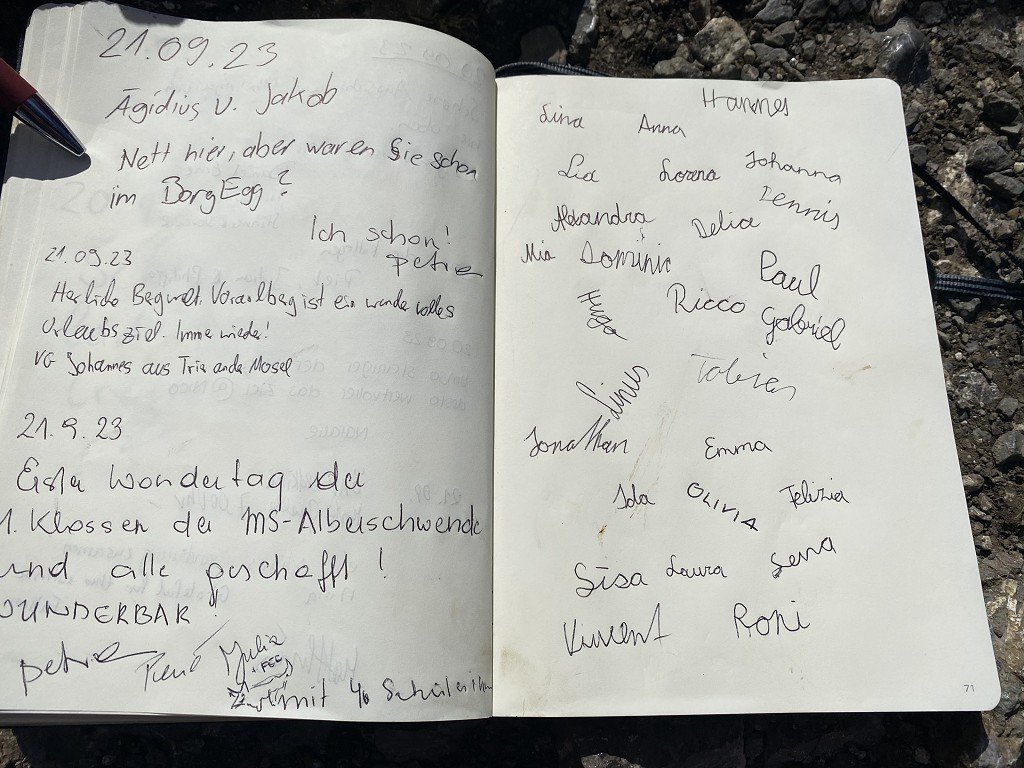 21.09.23
Ägidius u. Jakob
Nett hier, aber waren Sie schon
im BorgEgg?
Ich schon!
petra
21.09.23
Herliche Bergwelt. Vorarlberg ist ein wundervolles
Urlaubsziel. Immer wieder!
VG Johannes aus Trier an der Mosel
21.9.23
Erster Wandertag der
1. Klassen der MS-Alberschwende
und alle geschafft!
WUNDERBAR!
petra Julia
mit 46 Schüler
Hannes
Lina Anna
Lea Lorena Johanna
Dennis
Alexandra Delia
Mia Dominic Paul
Hugo Ricco Gabriel
Tobias
Linus
Jonathan Emma
Ida OLIVIA Felizia
Sisa Laura Sena
Vincent Roni
71